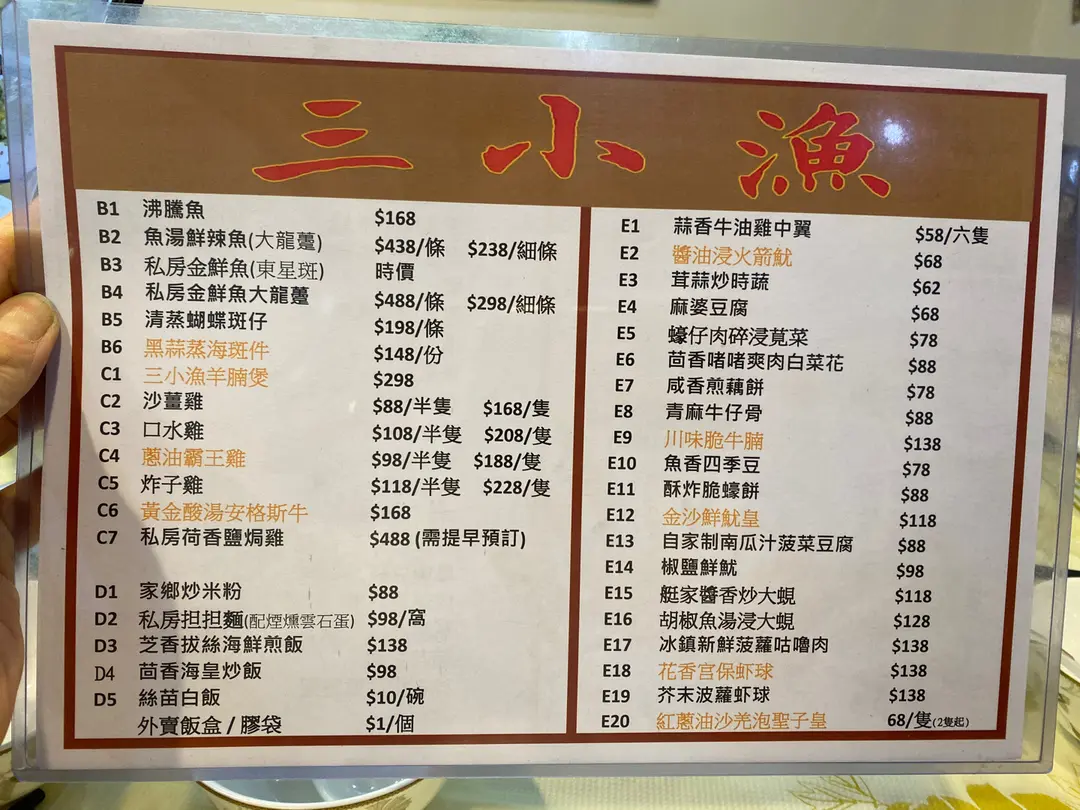 三小漁
B1 沸騰魚 $168
B2 魚湯鮮辣魚(大龍躉) $438/條 $238/細條
B3 私房金鮮魚(東星斑) 時價
B4 私房金鮮魚大龍躉 $488/條 $298/細條
B5 清蒸蝴蝶斑仔 $198/條
B6 黑蒜蒸海斑件 $148/份
C1 三小漁羊腩煲 $298
C2 沙薑雞 $88/半隻 $168/隻
C3 口水雞 $108/半隻 $208/隻
C4 蔥油霸王雞 $98/半隻 $188/隻
C5 炸子雞 $118/半隻 $228/隻
C6 黃金酸湯安格斯牛 $168
C7 私房荷香鹽焗雞 $488 (需提早預訂)
D1 家鄉炒米粉 $88
D2 私房担担麵(配煙燻雲石蛋) $98/窩
D3 芝香拔絲海鮮煎飯 $138
D4 茴香海皇炒飯 $98
D5 絲苗白飯 $10/碗
外賣飯盒 / 膠袋 $1/個
E1 蒜香牛油雞中翼 $58/六隻
E2 醬油浸火箭魷 $68
E3 茸蒜炒時蔬 $62
E4 麻婆豆腐 $68
E5 蠔仔肉碎浸莧菜 $78
E6 茴香啫啫爽肉白菜花 $88
E7 咸香煎藕餅 $78
E8 青麻牛仔骨 $88
E9 川味脆牛腩 $138
E10 魚香四季豆 $78
E11 酥炸脆蠔餅 $88
E12 金沙鮮魷皇 $118
E13 自家制南瓜汁菠菜豆腐 $88
E14 椒鹽鮮魷 $98
E15 艇家醬香炒大蜆 $118
E16 胡椒魚湯浸大蜆 $128
E17 冰鎮新鮮菠蘿咕嚕肉 $138
E18 花香宮保虾球 $138
E19 芥末波蘿虾球 $138
E20 紅蔥油沙羌泡聖子皇 68/隻(2隻起)